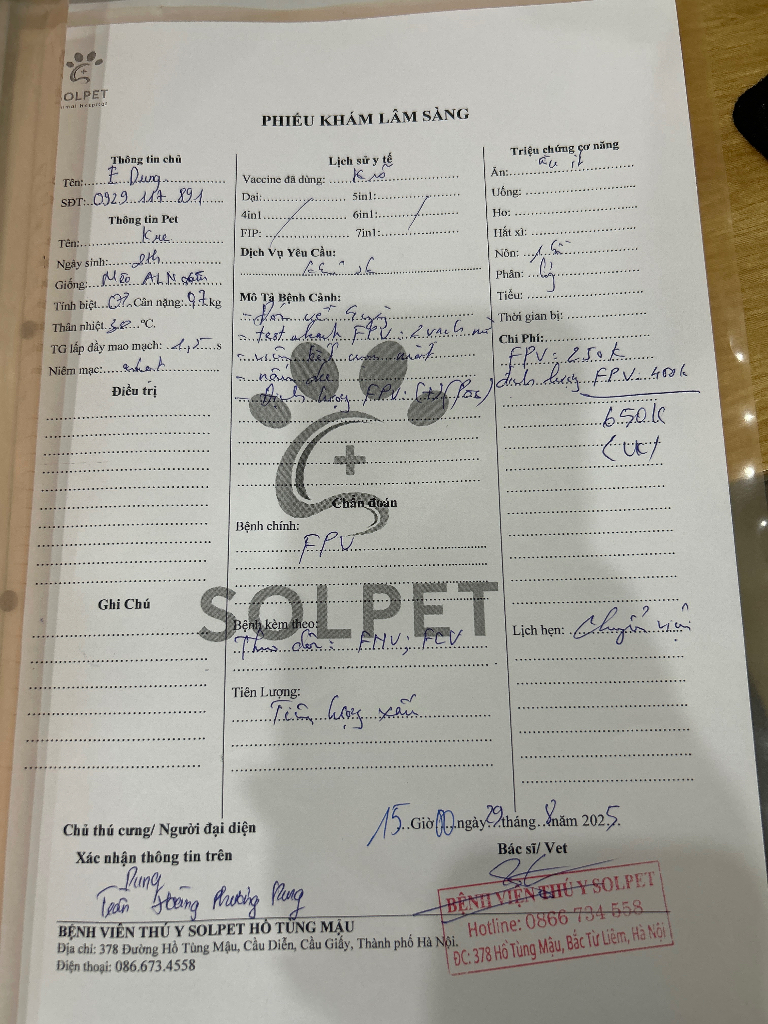 SOLPET
PHIẾU KHÁM LÂM SÀNG
Thông tin chủ
Tên: E Dung
SĐT: 0929 117 891
Thông tin Pet
Tên:
Ngày sinh: 2th
Giống: Mèo ALN
Tính biệt Cân nặng: 0,7 kg
Thân nhiệt °C.
TG lấp đầy mao mạch: 1,5 s
Niêm mạc: nhạt
Điều trị
Ghi Chú
Lịch sử y tế
Vaccine đã dùng:
Dại: 5in1:
4in1 6in1:
FIP: 7in1:
Dịch Vụ Yêu Cầu:
Mô Tả Bệnh Cảnh:
- test nhanh FPV: 2 vạch
- Định lượng FPV: (+)
SOLPET
Chẩn đoán
Bệnh chính:
FPV
Bệnh kèm theo:
Theo dõi: FHV; FCV
Tiên Lượng:
Tiên lượng xấu
Triệu chứng cơ năng
Ăn: ít
Uống:
Ho:
Hắt xì:
Nôn:
Phân:
Tiểu:
Thời gian bị:
Chi Phí:
FPV: 250k
định lượng FPV 400k
650k
(CK)
Lịch hẹn: Chuyển viện
15 Giờ 00 ngày 29 tháng 8 năm 2025.
Chủ thú cưng/ Người đại diện
Xác nhận thông tin trên
Dung
Trần Hoàng Phương Dung
Bác sĩ/ Vet
BỆNH VIỆN THÚ Y SOLPET
Hotline: 0866 734 558
ĐC: 378 Hồ Tùng Mậu, Bắc Từ Liêm, Hà Nội
BỆNH VIỆN THÚ Y SOLPET HỒ TÙNG MẬU
Địa chỉ: 378 Đường Hồ Tùng Mậu, Cầu Diễn, Cầu Giấy, Thành phố Hà Nội.
Điện thoại: 086.673.4558